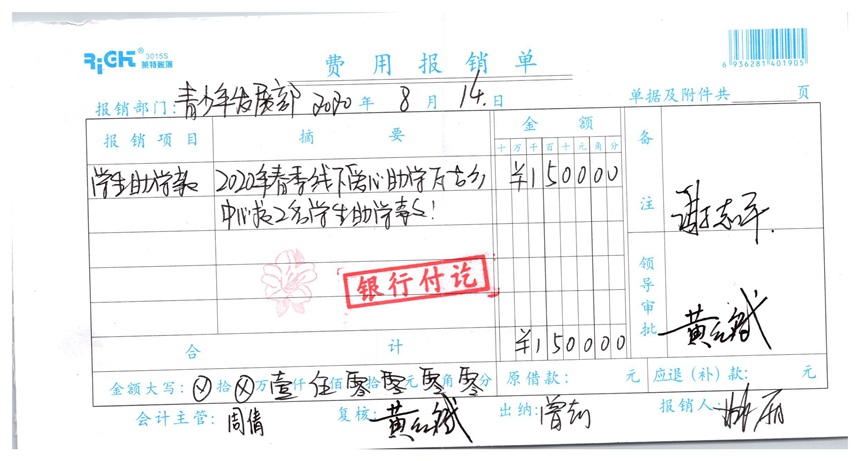 RiGHT® 3015S 莱特账簿
费用报销单
6 936281 401905
报销部门:青少年发展部 2020年8月14日
单据及附件共 页
报销项目 摘要 金额 备注
十万千百十元角分
学生助学款 2020年春季线下爱心助学 ¥150000
中心校2名学生助学款!
银行付讫
领导审批
合计 ¥150000
金额大写: 拾 万壹仟伍佰零拾零元零角零分 原借款: 元 应退(补)款: 元
会计主管:周倩 复核: 出纳: 报销人: